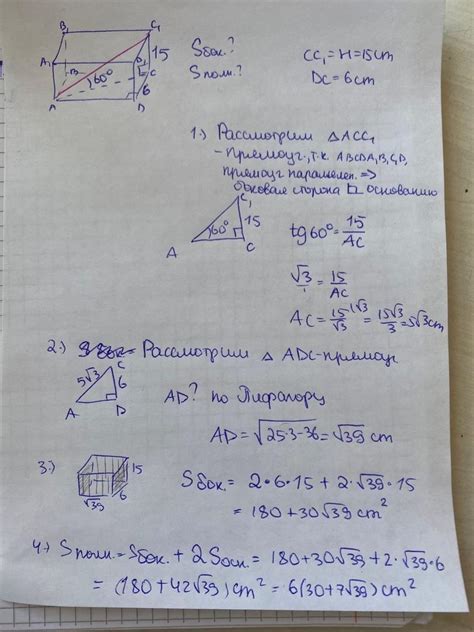 B₁
C₁
Sбок.?
CC₁ = H = 15 cm
15
A₁
D₁
Sполн.?
DC = 6 cm
B
C
60°
6
A
D
1.) Рассмотрим △ACC₁
- прямоуг., т.к. ABCDA₁B₁C₁D₁
прямоуг. параллелеп. =>
боковая сторона ⊥ основанию
C₁
15
tg60° = 15/AC
60°
A
C
√3/1 = 15/AC
AC = 15/√3 = 15√3/3 = 5√3 cm
2.) Рассмотрим △ ADC-прямоуг
C
5√3
6
AD? по Пифагору
A
D
AD = √25·3-36 = √39 cm
3.)
15
Sбок. = 2·6·15 + 2·√39·15
6
√39
= 180+30√39 cm²
4.) Sполн. = Sбок. + 2Sосн. = 180+30√39+2·√39·6
= (180+42√39) cm² = 6(30+7√39) cm²